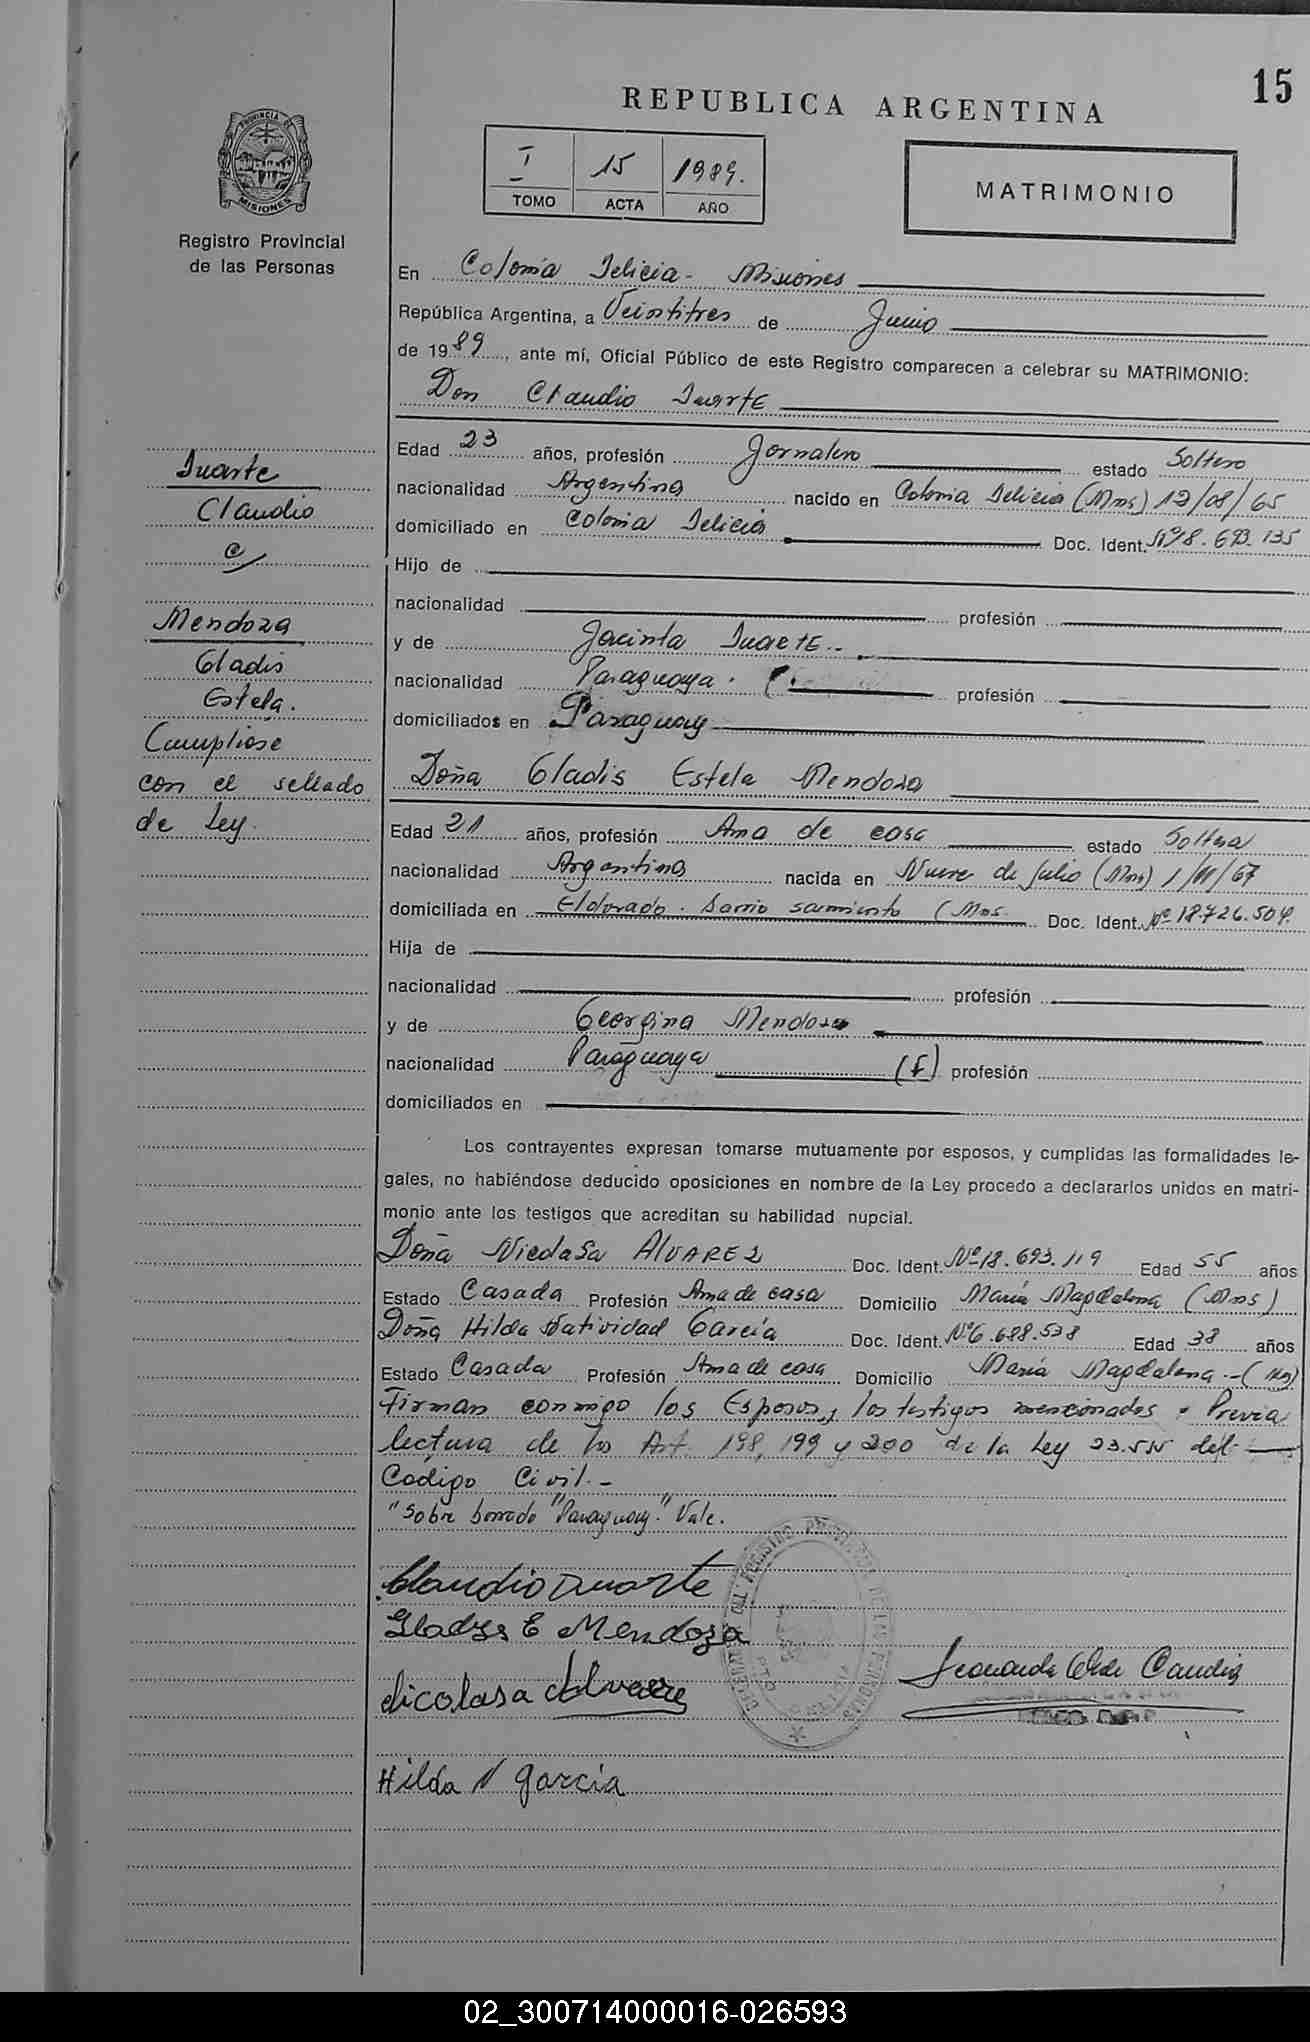 15
REPUBLICA ARGENTINA
I 15 1989.
TOMO ACTA AÑO
MATRIMONIO
PROVINCIA DE
MISIONES
Registro Provincial
de las Personas
En Colonia Delicia - Misiones
República Argentina, a Veintitres de Junio
de 1989, ante mí, Oficial Público de este Registro comparecen a celebrar su MATRIMONIO:
Don Claudio Duarte
Edad 23 años, profesión Jornalero estado Soltero
nacionalidad Argentina nacido en Colonia Delicia (Mns) 12/08/65
domiciliado en Colonia Delicia Doc. Ident. Nº18.693.135
Hijo de
nacionalidad profesión
y de Jacinta Duarte.-
nacionalidad Paraguaya. profesión
domiciliados en Paraguay
Duarte
Claudio
c/
Mendoza
Gladis
Estela.
Cumpliose
con el sellado
de Ley.
Doña Gladis Estela Mendoza
Edad 21 años, profesión Ama de casa estado Soltera
nacionalidad Argentina nacida en Nueve de Julio (Mns) 1/11/67
domiciliada en Eldorado. Barrio sarmiento (Mns Doc. Ident. Nº 18.726.504.
Hija de
nacionalidad profesión
y de Georgina Mendoza
nacionalidad Paraguaya (f) profesión
domiciliados en
Los contrayentes expresan tomarse mutuamente por esposos, y cumplidas las formalidades le-
gales, no habiéndose deducido oposiciones en nombre de la Ley procedo a declararlos unidos en matri-
monio ante los testigos que acreditan su habilidad nupcial.
Doña Nicolasa ALVAREZ Doc. Ident. Nº18.693.119 Edad 55 años
Estado Casada Profesión Ama de casa Domicilio María Magdalena (Mns)
Doña Hilda Natividad García Doc. Ident. Nº6.688.538 Edad 38 años
Estado Casada Profesión Ama de casa Domicilio María Magdalena -(Mns)
Firman conmigo los Esposos, y los testigos mencionados Previa
lectura de los Art. 198, 199 y 200 de la Ley 23.515 del
Codigo Civil.-
"Sobre borrado "Paraguay". Vale.
Claudio Duarte
Gladys E Mendoza
Nicolasa Alvarez
Hilda N García
02_300714000016-026593